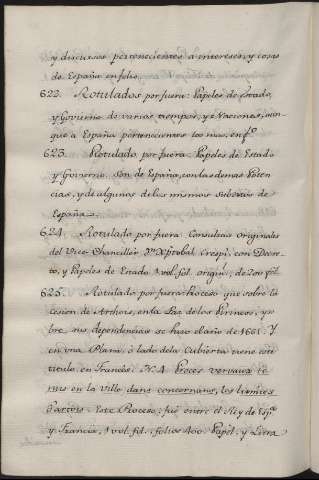 y discursos pertenecientes á intereses, y cosas
de España en folio.
622. Rotulados por fuera: Papeles de Estado,
y Govierno de varios tiempos, y Naciones, aun-
que á España pertenecientes los mas, en fº
623. Rotulado por fuera: Papeles de Estado
y Govierno. Son de España, con las demas Poten-
cias, y de algunas de las mismas Subditas de
España.
624. Rotulado por fuera: Consultas Originales
del Vice-Chanciller Dn. Xptobal Crespi, con Decre-
to, y Papeles de Estado 1 vol. fol. origin. de 200 fol.
625. Rotulado por fuera Proceso que sobre la
cesion de Arthois, en la Paz de los Pirineos, y so-
bre sus dependencias se hizo el año de 1661. Y
en una Plana, ó lado de la Cubierta tiene este
titulo en Francés: N. 4 Proces verbaux te-
nus en la Ville dans concernans, les limites
Este Proceso, fué entre el Rey de Espª
y Francia, 1 vol. fol. folios 400. Papel, y Letra